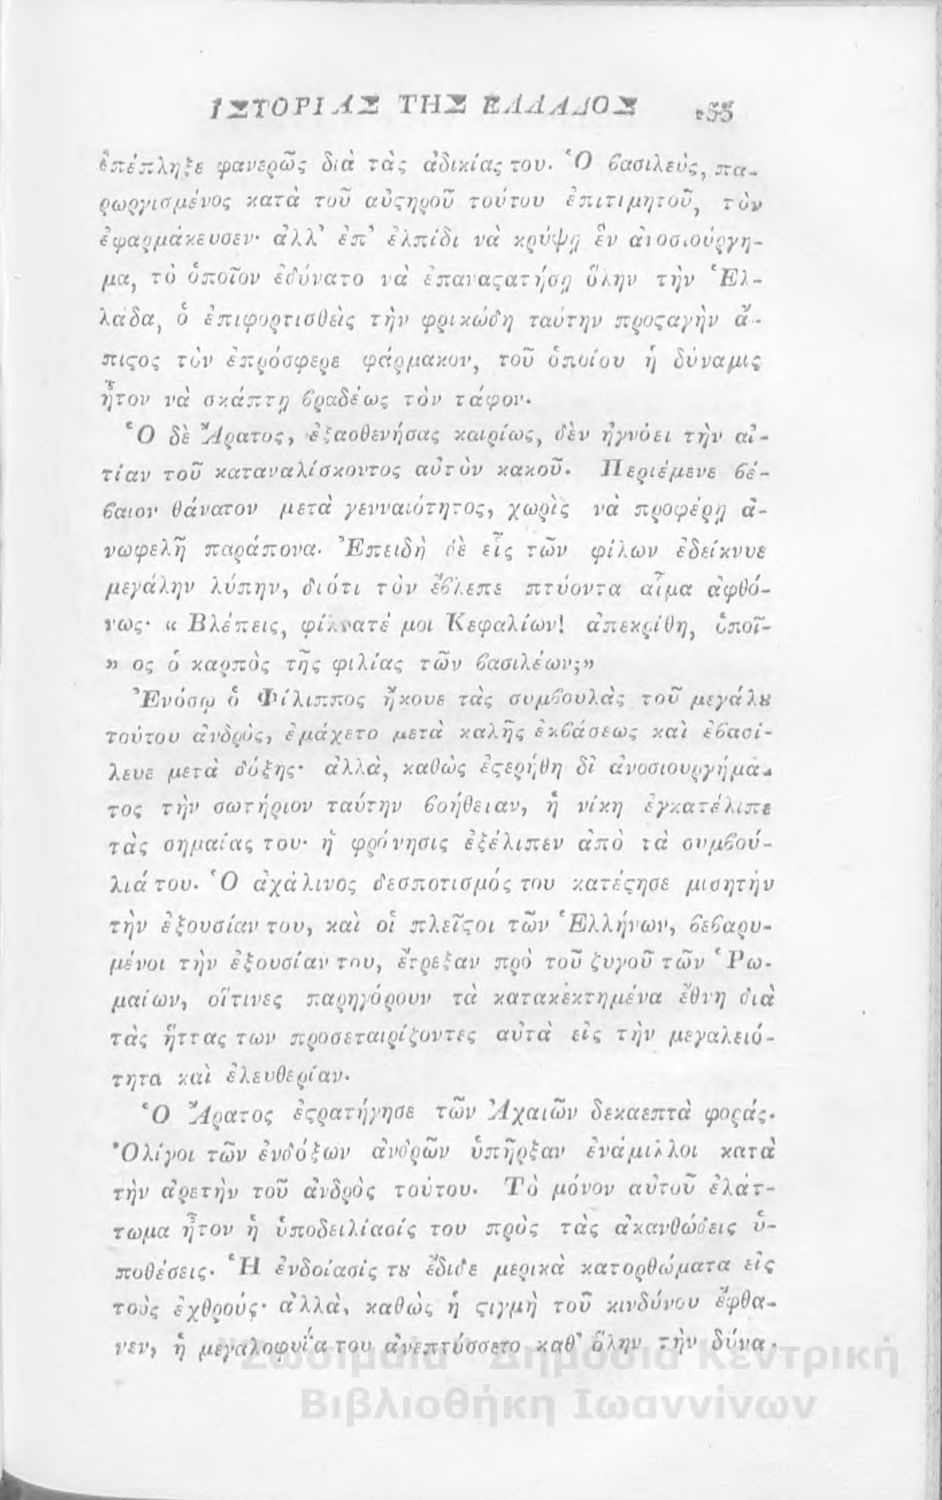 ΙΣΤΟΡΙΑΣ ΤΗΣ ΕΛΛΑΔΟΣ 255
ἐπέπληξε φανερῶς διὰ τὰς ἀδικίας του. Ὁ βασιλεὺς, πα-
ρωργισμένος κατὰ τοῦ αὐϛηροῦ τούτου ἐπιτιμητοῦ, τὸν
ἐφαρμάκευσεν· ἀλλ' ἐπ' ἐλπίδι νὰ κρύψῃ ἓν ἀνοσιούργη-
μα, τὸ ὁποῖον ἐδύνατο νὰ ἐπαναϛατήσῃ ὅλην τὴν Ἑλ-
λάδα, ὁ ἐπιφορτισθεὶς τὴν φρικώδη ταύτην προϛαγὴν ἄ-
πιϛος τὸν ἐπρόσφερε φάρμακον, τοῦ ὁποίου ἡ δύναμις
ἦτον νὰ σκάπτῃ βραδέως τὸν τάφον.
Ὁ δὲ Ἄρατος, ἐξασθενήσας καιρίως, δὲν ἠγνόει τὴν αἰ-
τίαν τοῦ καταναλίσκοντος αὐτὸν κακοῦ. Περιέμενε βέ-
βαιον θάνατον μετὰ γενναιότητος, χωρὶς νὰ προφέρῃ ἀ-
νωφελῆ παράπονα. Ἐπειδὴ δὲ εἷς τῶν φίλων ἐδείκνυε
μεγάλην λύπην, διότι τὸν ἔβλεπε πτύοντα αἷμα ἀφθό-
νως· « Βλέπεις, φίλτατέ μοι Κεφαλίων! ἀπεκρίθη, ὁποῖ-
» ος ὁ καρπὸς τῆς φιλίας τῶν βασιλέων;»
Ἐνόσῳ ὁ Φίλιππος ἤκουε τὰς συμβουλὰς τοῦ μεγάλȣ
τούτου ἀνδρὸς, ἐμάχετο μετὰ καλῆς ἐκβάσεως καὶ ἐβασί-
λευε μετὰ δόξης· ἀλλὰ, καθὼς ἐϛερήθη δι' ἀνοσιουργήμα-
τος τὴν σωτήριον ταύτην βοήθειαν, ἡ νίκη ἐγκατέλιπε
τὰς σημαίας του· ἡ φρόνησις ἐξέλιπεν ἀπὸ τὰ συμβού-
λιά του. Ὁ ἀχάλινος δεσποτισμός του κατέϛησε μισητὴν
τὴν ἐξουσίαν του, καὶ οἱ πλεῖϛοι τῶν Ἑλλήνων, βεβαρυ-
μένοι τὴν ἐξουσίαν του, ἔτρεξαν πρὸ τοῦ ζυγοῦ τῶν Ῥω-
μαίων, οἵτινες παρηγόρουν τὰ κατακεκτημένα ἔθνη διὰ
τὰς ἥττας των προσεταιρίζοντες αὐτὰ εἰς τὴν μεγαλειό-
τητα καὶ ἐλευθερίαν.
Ὁ Ἄρατος ἐϛρατήγησε τῶν Ἀχαιῶν δεκαεπτὰ φοράς.
Ὀλίγοι τῶν ἐνδόξων ἀνδρῶν ὑπῆρξαν ἐνάμιλλοι κατὰ
τὴν ἀρετὴν τοῦ ἀνδρὸς τούτου. Τὸ μόνον αὐτοῦ ἐλάτ-
τωμα ἦτον ἡ ὑποδειλίασίς του πρὸς τὰς ἀκανθώδεις ὑ-
ποθέσεις. Ἡ ἐνδοίασίς τȣ ἔδιδε μερικὰ κατορθώματα εἰς
τοὺς ἐχθρούς· ἀλλὰ, καθὼς ἡ ϛιγμὴ τοῦ κινδύνου ἔφθα-
νεν, ἡ μεγαλοφυΐα του ἀνεπτύσσετο καθ' ὅλην τὴν δύνα-
Ζωσιμαία Δημόσια Κεντρική
Βιβλιοθήκη Ιωαννίνων